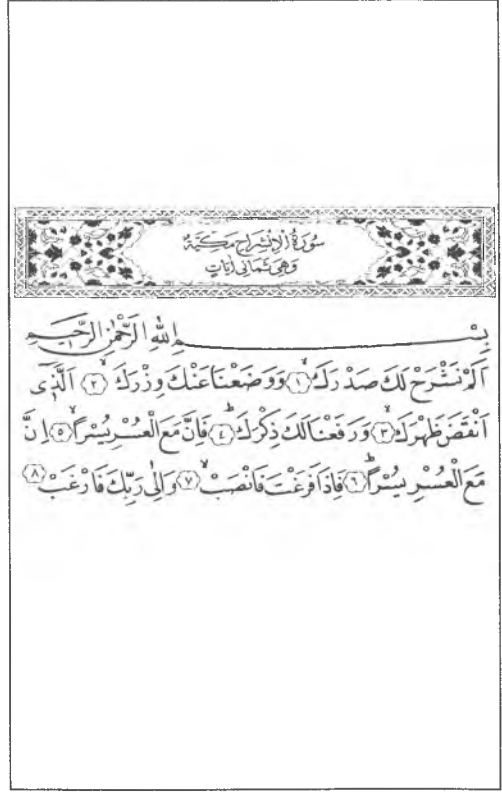 سُورَةُ الْاِنْشِرَاحِ مَكِّيَّةٌ
وَهِيَ ثَمَانِي اٰيَاتٍ
بِسْمِ اللّٰهِ الرَّحْمٰنِ الرَّحٖيمِ
اَلَمْ نَشْرَحْ لَكَ صَدْرَكَۙ ﴿١﴾ وَوَضَعْنَا عَنْكَ وِزْرَكَۙ ﴿٢﴾ اَلَّذٖٓى
اَنْقَضَ ظَهْرَكَۙ ﴿٣﴾ وَرَفَعْنَا لَكَ ذِكْرَكَؕ ﴿٤﴾ فَاِنَّ مَعَ الْعُسْرِ يُسْرًاۙ ﴿٥﴾ اِنَّ
مَعَ الْعُسْرِ يُسْرًاؕ ﴿٦﴾ فَاِذَا فَرَغْتَ فَانْصَبْۙ ﴿٧﴾ وَاِلٰى رَبِّكَ فَارْغَبْ ﴿٨﴾